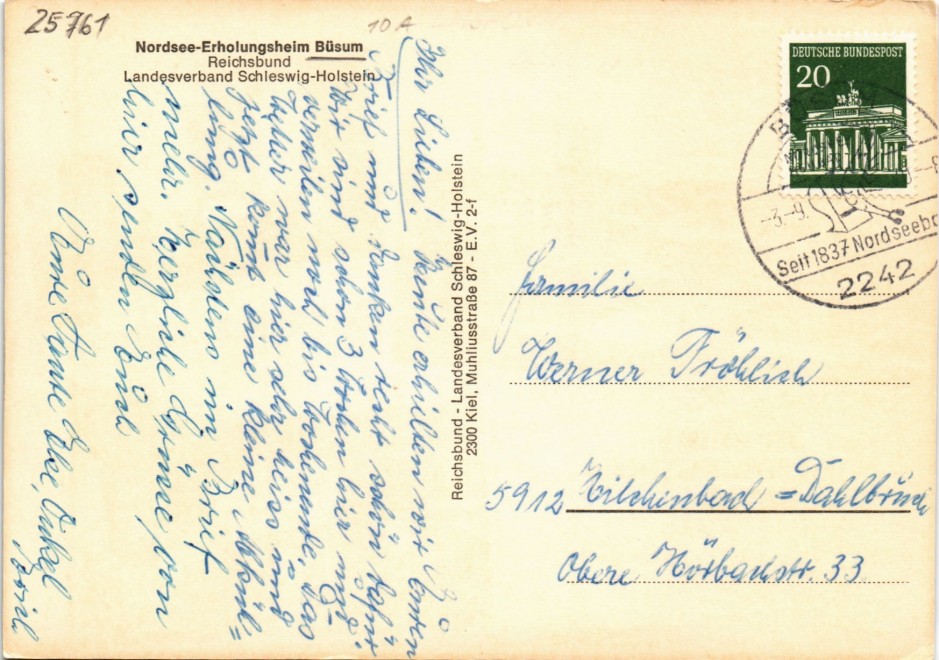 25761
10 A
Nordsee-Erholungsheim Büsum
Reichsbund
Landesverband Schleswig-Holstein
Ihr Lieben! Heute erhielten wir Euren
Brief und danken recht schön dafür
Wir sind schon 3 Wochen hier und
verweilen noch bis Wochenende. Das
Wetter war hier sehr heiss und
Jetzt komt eine kleine Abküh=
lung. Näheres im Brief
mehr. Herzliche Grüsse von
hier senden Euch
Eure Tante Else, Onkel
Reichsbund - Landesverband Schleswig-Holstein
2300 Kiel, Muhliusstraße 87 - E.V. 2-f
DEUTSCHE BUNDESPOST
20
-3.-9.
Seit 1837 Nordseeb
2242
Familie
Werner Fröhlich
5912 Hilchenbach=Dahlbruch
Obere Hörbachstr. 33